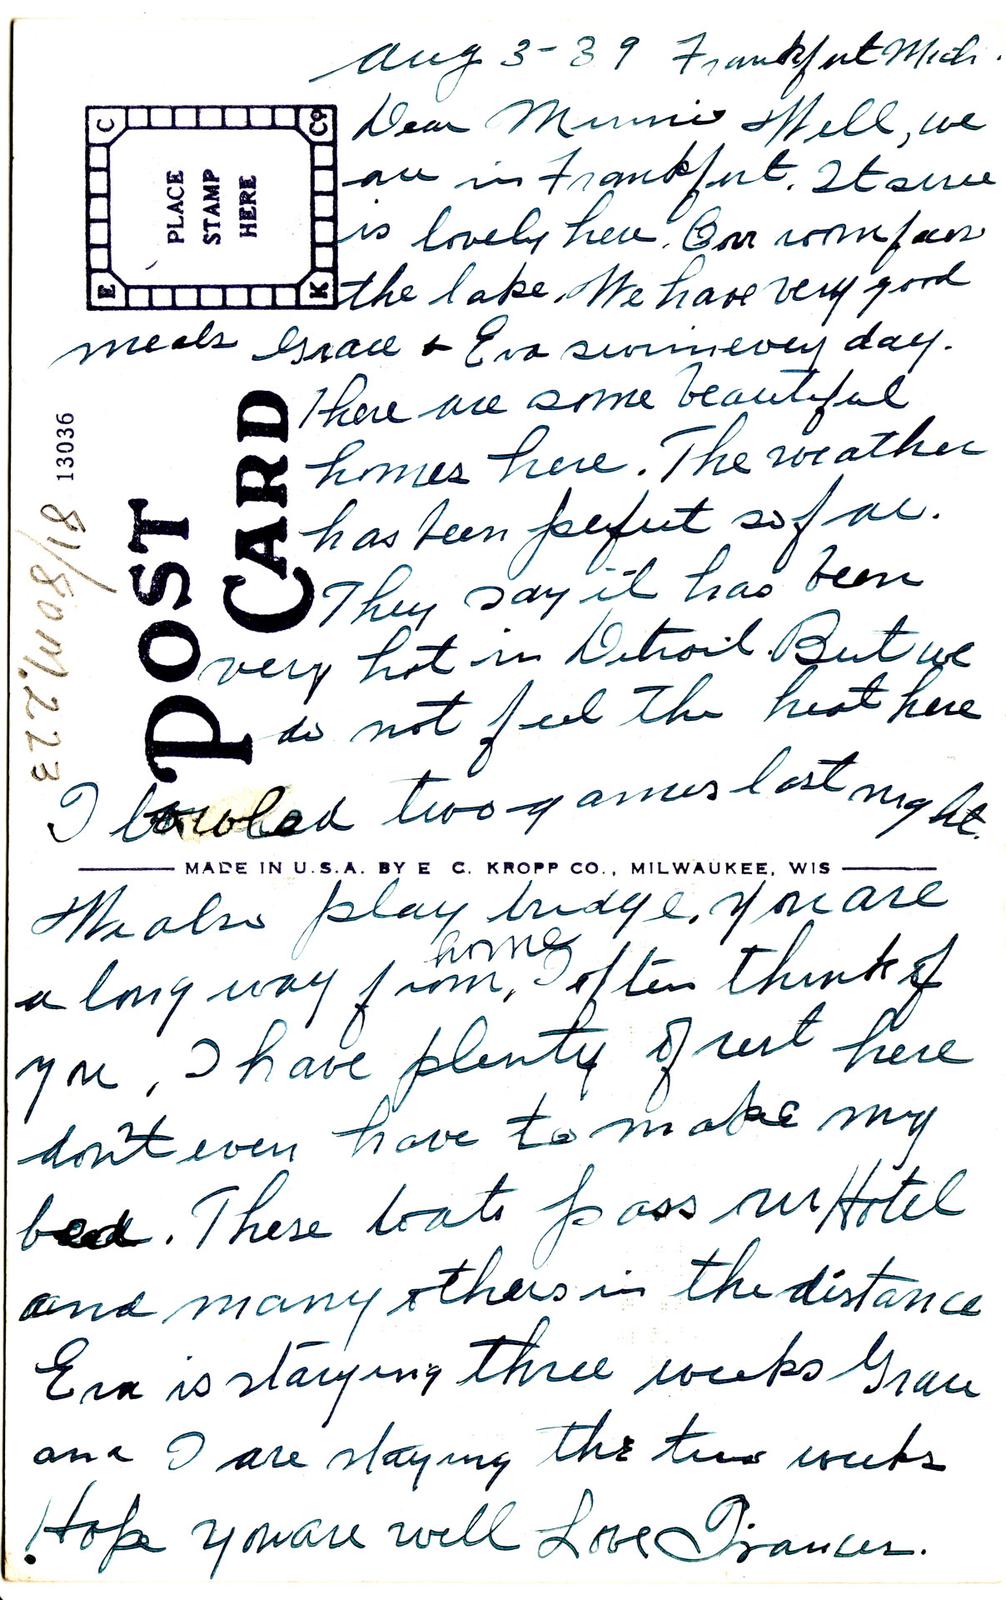 Aug 3-39 Frankfort Mich.
Dear Minnie Well, we
are in Frankfort. It sure
is lovely here. Our room faces
the lake. We have very good
meals Grace + Eva swim every day.
There are some beautiful
homes here. The weather
has been perfect so far.
They say it has been
very hot in Detroit. But we
do not feel the heat here
I bowled two games last night.
We also play bridge, you are
a long way from home, I often think of
you, I have plenty of rest here
don't even have to make my
bed. These boats pass our Hotel
and many others in the distance
Eva is staying three weeks Grace
and I are staying the two weeks
Hope you are well Love Frances.
E C K Co
PLACE
STAMP
HERE
POST
CARD
13036
MADE IN U.S.A. BY E. C. KROPP CO., MILWAUKEE, WIS